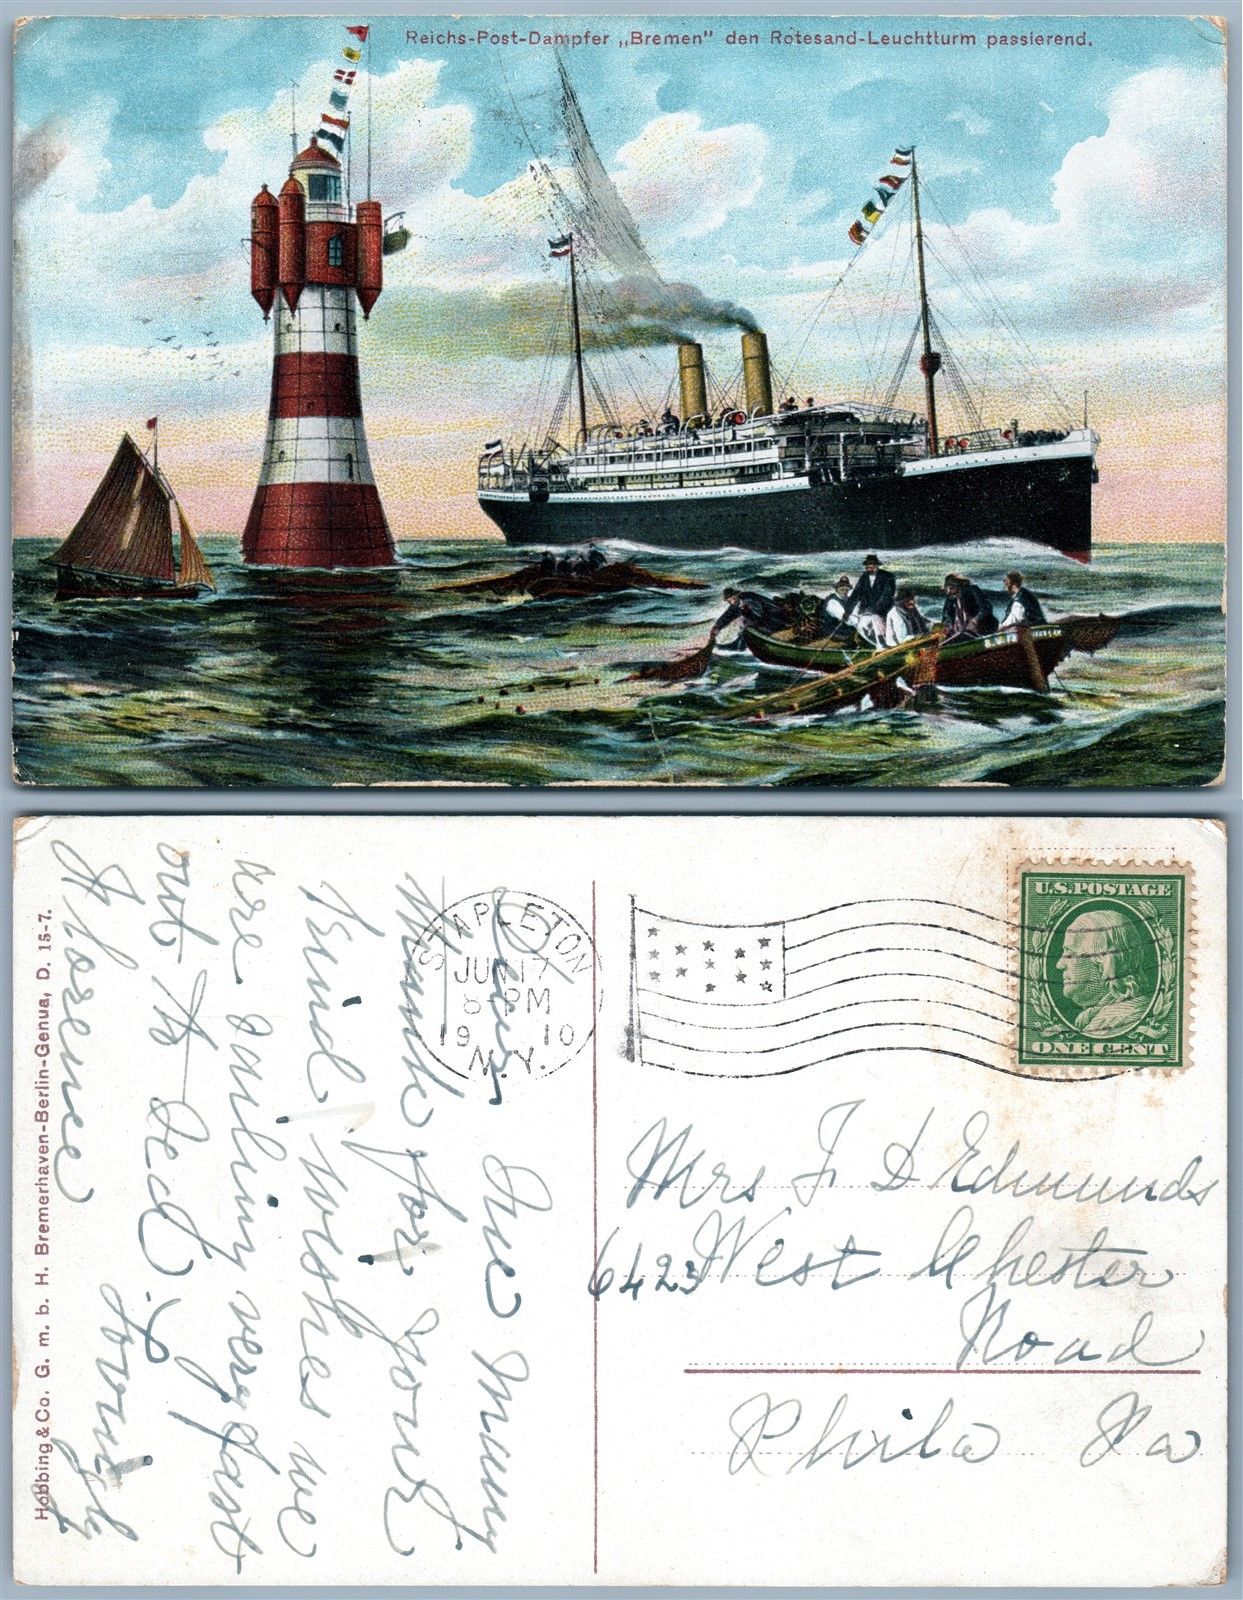 Reichs-Post-Dampfer „Bremen" den Rotesand-Leuchtturm passierend.
Hobbing & Co. G. m. b. H. Bremerhaven-Berlin-Genua, D. 15-7.
STAPLETON
JUN 17
8 PM
1910
N.Y.
U.S. POSTAGE
ONE CENT
Mrs F D Edmunds
6423 West Chester
Road
Phila Pa
many
thanks for your
kind wishes we
are sailing very fast
out to sea.
Lovingly
Florence